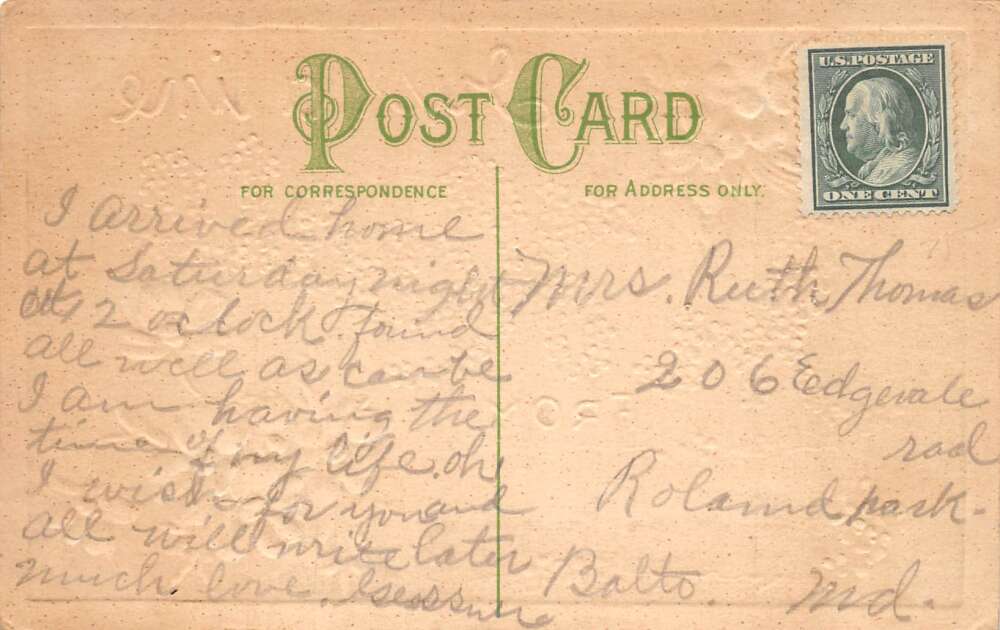 POST CARD
U.S. POSTAGE
ONE CENT
FOR CORRESPONDENCE
FOR ADDRESS ONLY.
I arrived home
at Saturday night
at 2 oclock found
all well as can be
I am having the
time of my life. oh
I wish for you and
all will write later
much love.
Mrs. Ruth Thomas
206 Edgevale
rad
Roland park.
Balto. Md.